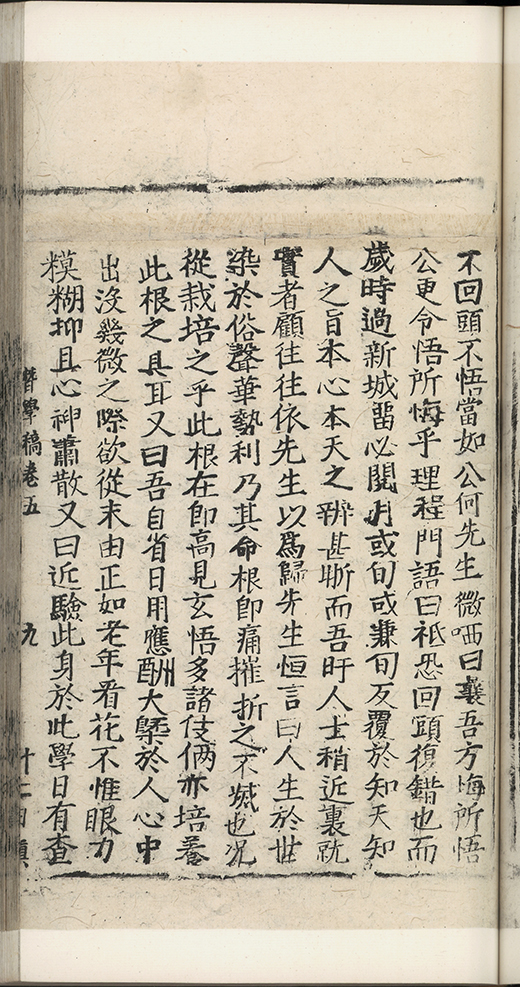 不回頭不悟當如公何先生微哂曰曩吾方悔所悟
公更令悟所悔乎理程門語曰祗恐回頭復錯也而
歲時過新城畱必閱月或旬或兼旬反覆於知天知
人之旨本心本天之辨甚晰而吾旴人士稍近裏就
實者顧往往依先生以爲歸先生恒言曰人生於世
染於俗聲華勢利乃其命根卽痛摧折之不滅也况
從栽培之乎此根在卽高見玄悟多諸伎倆亦培養
此根之具耳又曰吾自省日用應酬大槩於人心中
出沒幾微之際欲從末由正如老年看花不惟眼力
糢糊抑且心神蕭散又曰近驗此身於此學日有查
學稿卷五
九